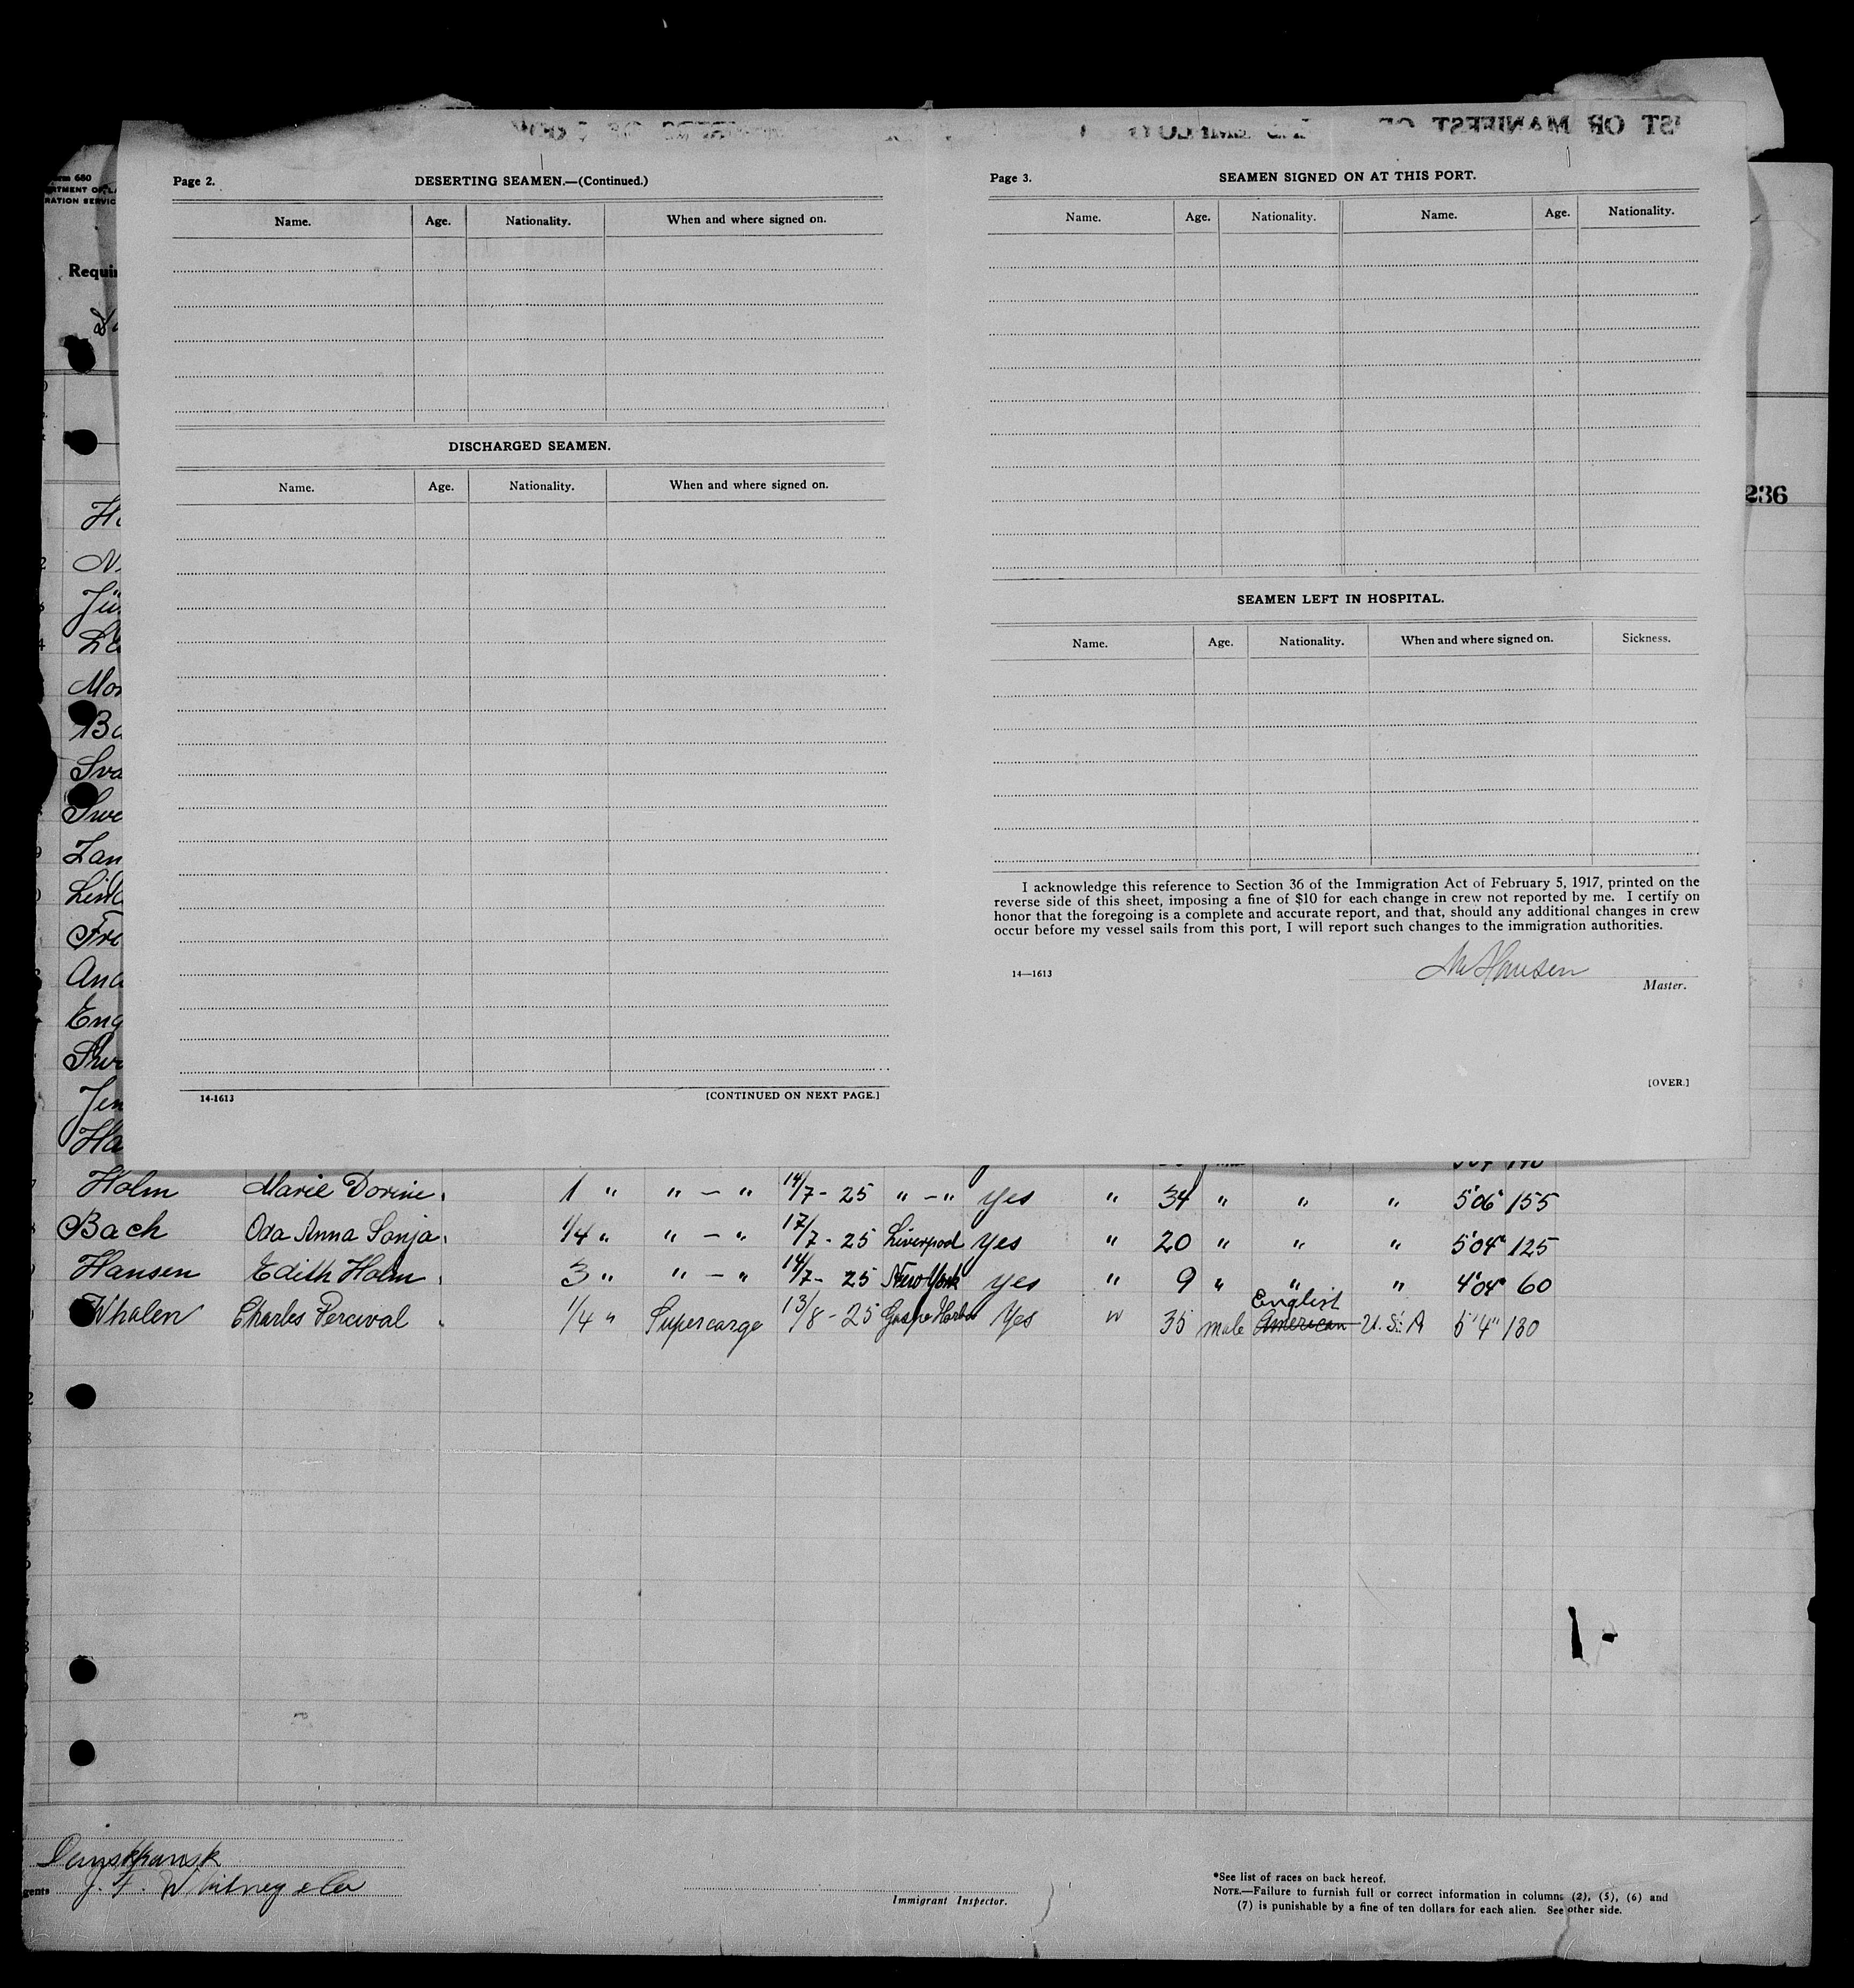 Page 2. DESERTING SEAMEN.—(Continued.)
Name. Age. Nationality. When and where signed on.
DISCHARGED SEAMEN.
Name. Age. Nationality. When and where signed on.
14-1613 [CONTINUED ON NEXT PAGE.]
Page 3. SEAMEN SIGNED ON AT THIS PORT.
Name. Age. Nationality. Name. Age. Nationality.
SEAMEN LEFT IN HOSPITAL.
Name. Age. Nationality. When and where signed on. Sickness.
I acknowledge this reference to Section 36 of the Immigration Act of February 5, 1917, printed on the
reverse side of this sheet, imposing a fine of $10 for each change in crew not reported by me. I certify on
honor that the foregoing is a complete and accurate report, and that, should any additional changes in crew
occur before my vessel sails from this port, I will report such changes to the immigration authorities.
14—1613 Hansen
Master.
[OVER.]
680
Requi
236
Holm Marie Dorine 1 " " — " 14/7 - 25 " — " yes " 34 " " " 5'06" 155
Bach Oda Anna Sonja 1/4 " " — " 17/7 - 25 Liverpool yes " 20 " " " 5'04" 125
Hansen Edith Holm 3 " " — " 14/7 - 25 New York yes " 9 " " " 4'04" 60
English
Whalen Charles Percival 1/4 " Supercargo 13/8 - 25 Yes " 35 male American U.S.A 5'4" 130
J. F. Whitney & Co
Immigrant Inspector.
*See list of races on back hereof.
NOTE.—Failure to furnish full or correct information in columns (2), (5), (6) and
(7) is punishable by a fine of ten dollars for each alien. See other side.